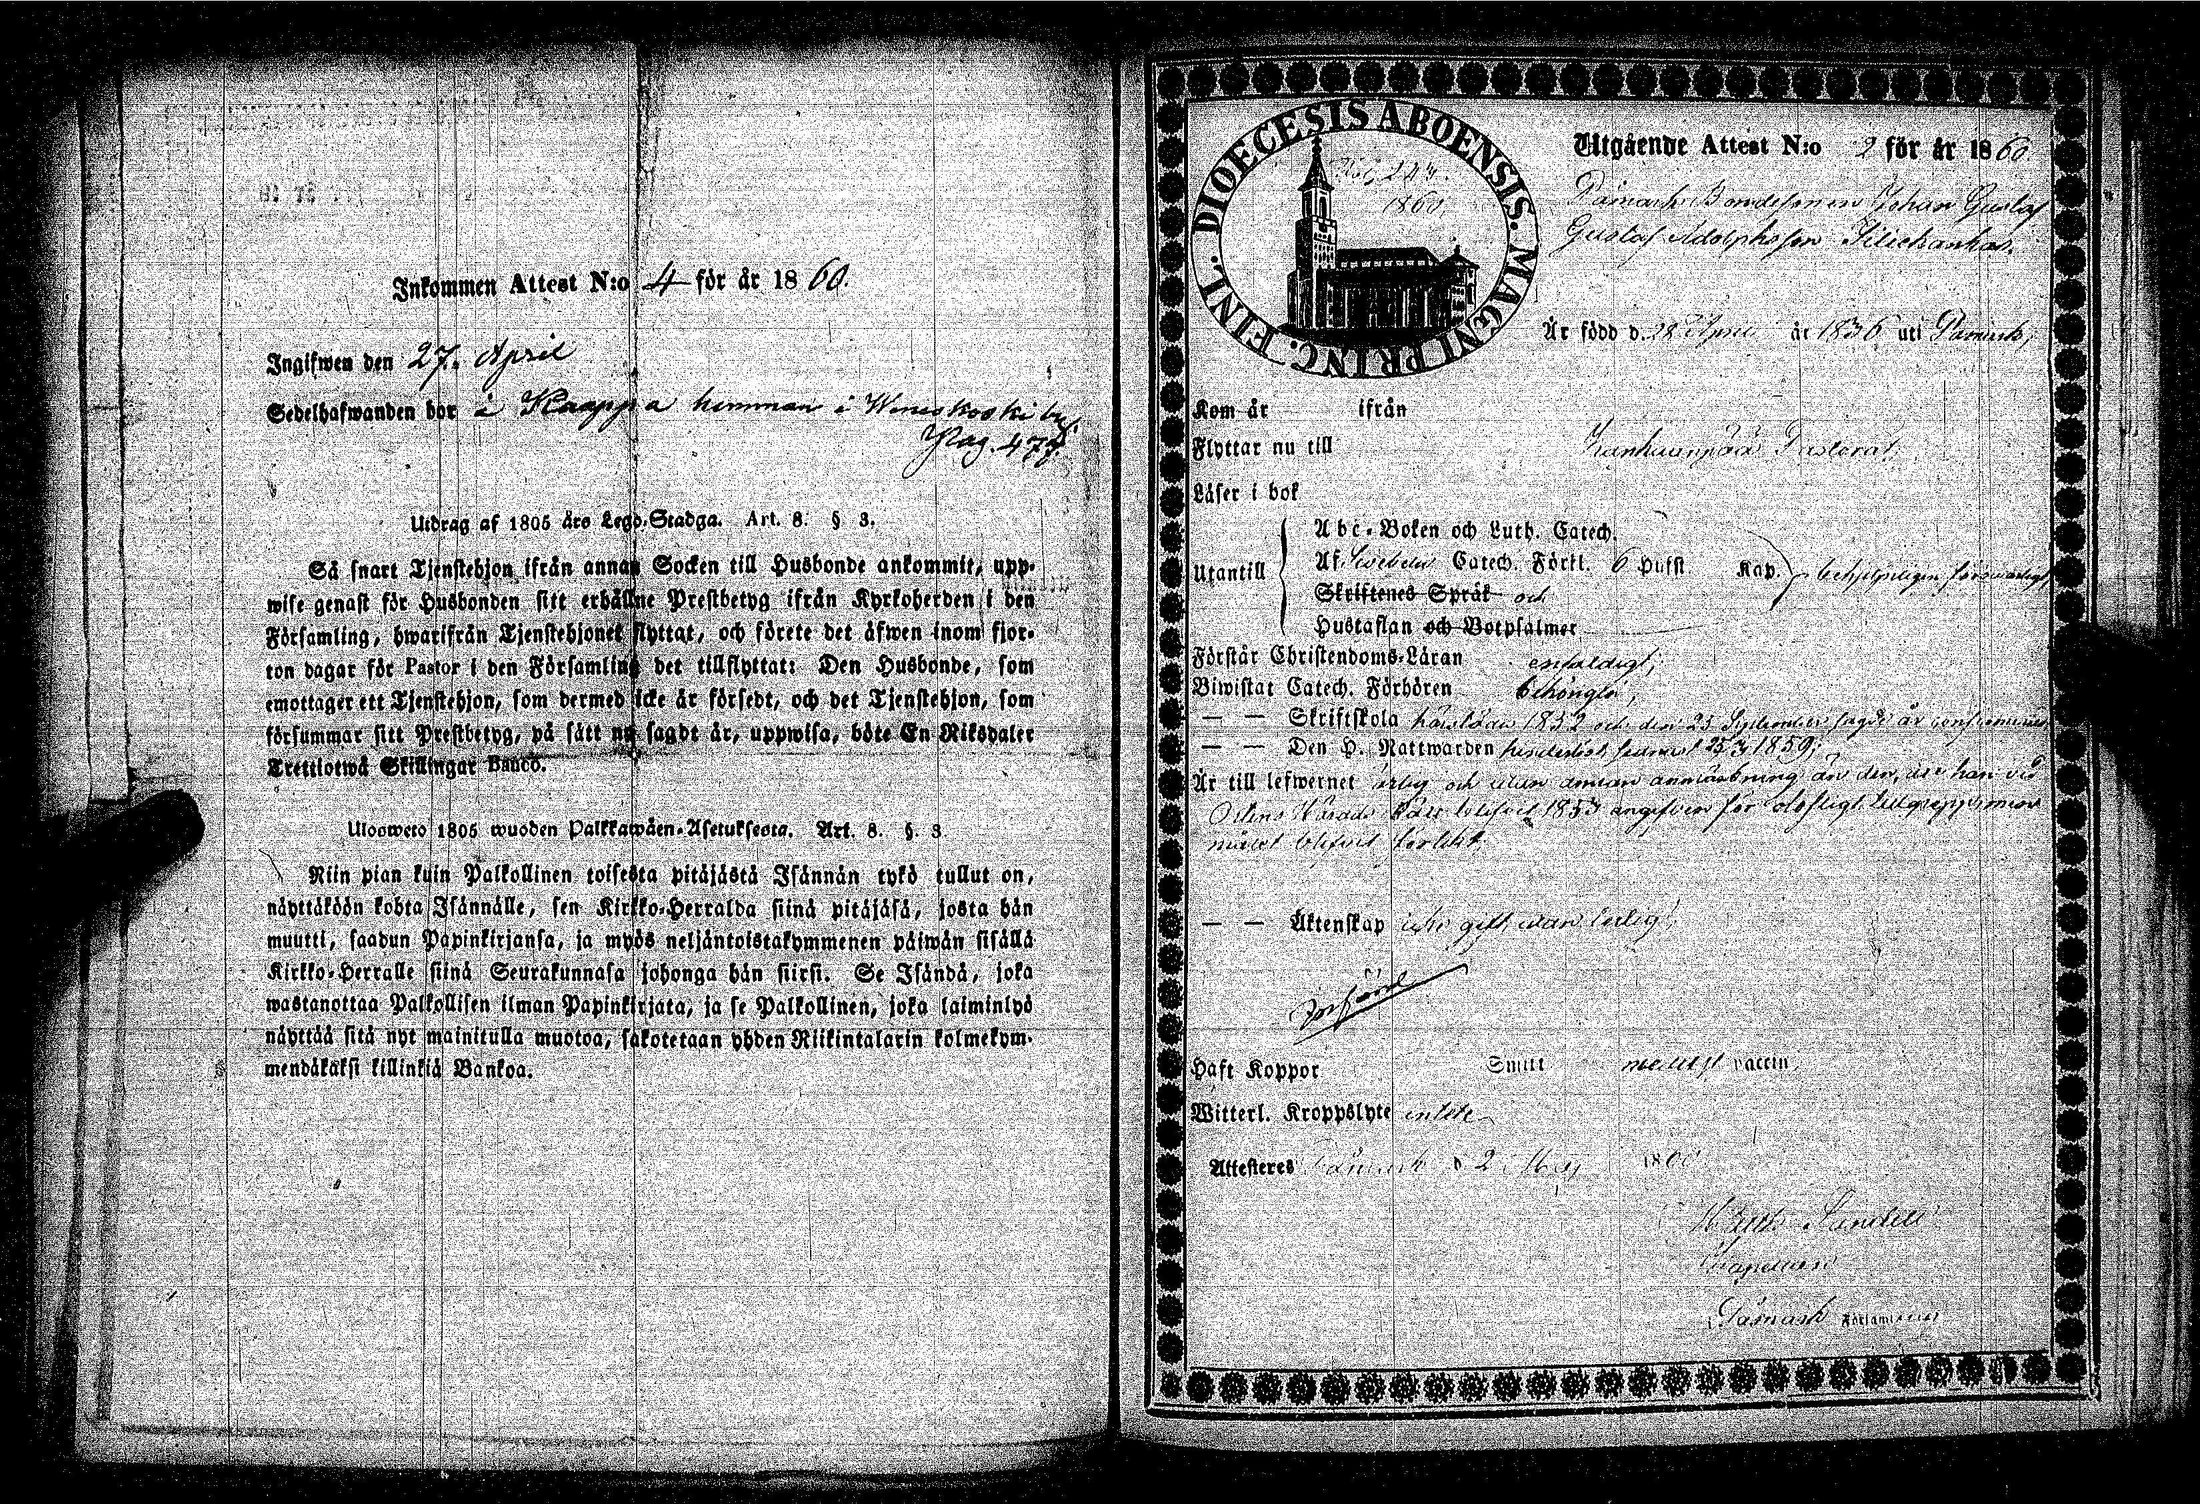 Inkommen Attest N:o 4 för år 1860.
Ingifwen den 27. April
Sedelhafwanden bor i Kaappa hemman i Wineskoski by
Pag. 477.
Utdrag af 1805 års Lego-Stadga. Art. 8. § 3.
Så snart Tjenstehjon ifrån annan Socken till Husbonde ankommit, upp-
wise genast för Husbonden sitt erhållne Prestbetyg ifrån Kyrkoherden i den
Församling, hwarifrån Tjenstehjonet flyttat, och förete det äfwen inom fjor-
ton dagar för Pastor i den Församling det tillflyttat: Den Husbonde, som
emottager ett Tjenstehjon, som dermed icke är försedt, och det Tjenstehjon, som
försummar sitt Prestbetyg, på sätt nu sagdt är, uppwisa, böte En Riksdaler
Trettiotwå Skillingar Banco.
Ulosweto 1805 wuoden Palkkawäen-Asetuksesta. Art. 8. §. 3
Niin pian kuin Palkollinen toisesta pitäjästä Isännän tykö tullut on,
näyttäköön kohta Isännälle, sen Kirkko-Herralda siinä pitäjäsä, josta hän
muutti, saadun Papinkirjansa, ja myös neljäntoistakymmenen päiwän sisällä
Kirkko-Herralle siinä Seurakunnasa johonga hän siirsi. Se Isändä, joka
wastanottaa Palkollisen ilman Papinkirjata, ja se Palkollinen, joka laiminlyö
näyttää sitä nyt mainitulla muotoa, sakotetaan yhden Riikintalarin kolmekym-
mendäkaksi killinkiä Bankoa.
DIOECESIS ABOENSIS. MAGNI PRINC. FINL.
243.
1860.
Utgående Attest N:o 2 för år 1860
Påmark Bondesonen Johan Gustaf
Gustaf Adolphsson
Är född d. 28 April år 1836 uti Påmark,
Kom år ifrån
Flyttar nu till Kankaanpää Pastorat,
Läser i bok
Utantill
Abc-Boken och Luth. Catech.
Af Svebelii Catech. Förkl. 6 Hufst Kap.
Skriftenes Språk och
Hustaflan och Botpsalmer
Förstår Christendoms-Läran enfaldigt,
Biwistat Catech. Förhören
— — Skriftskola 1852 och den 25 September
— — Den H. Nattwarden 1859;
Är till lefwernet ärlig och utan annan anmärkning än den, att han vid
1853 angifven för
— — Äktenskap icke gift utan ledig
Haft Koppor Smitt medelst vaccin,
Witterl. Kroppslyte intete
Attesteres Påmark d 2 Maj 1860
Kapellan
Påmark Församling